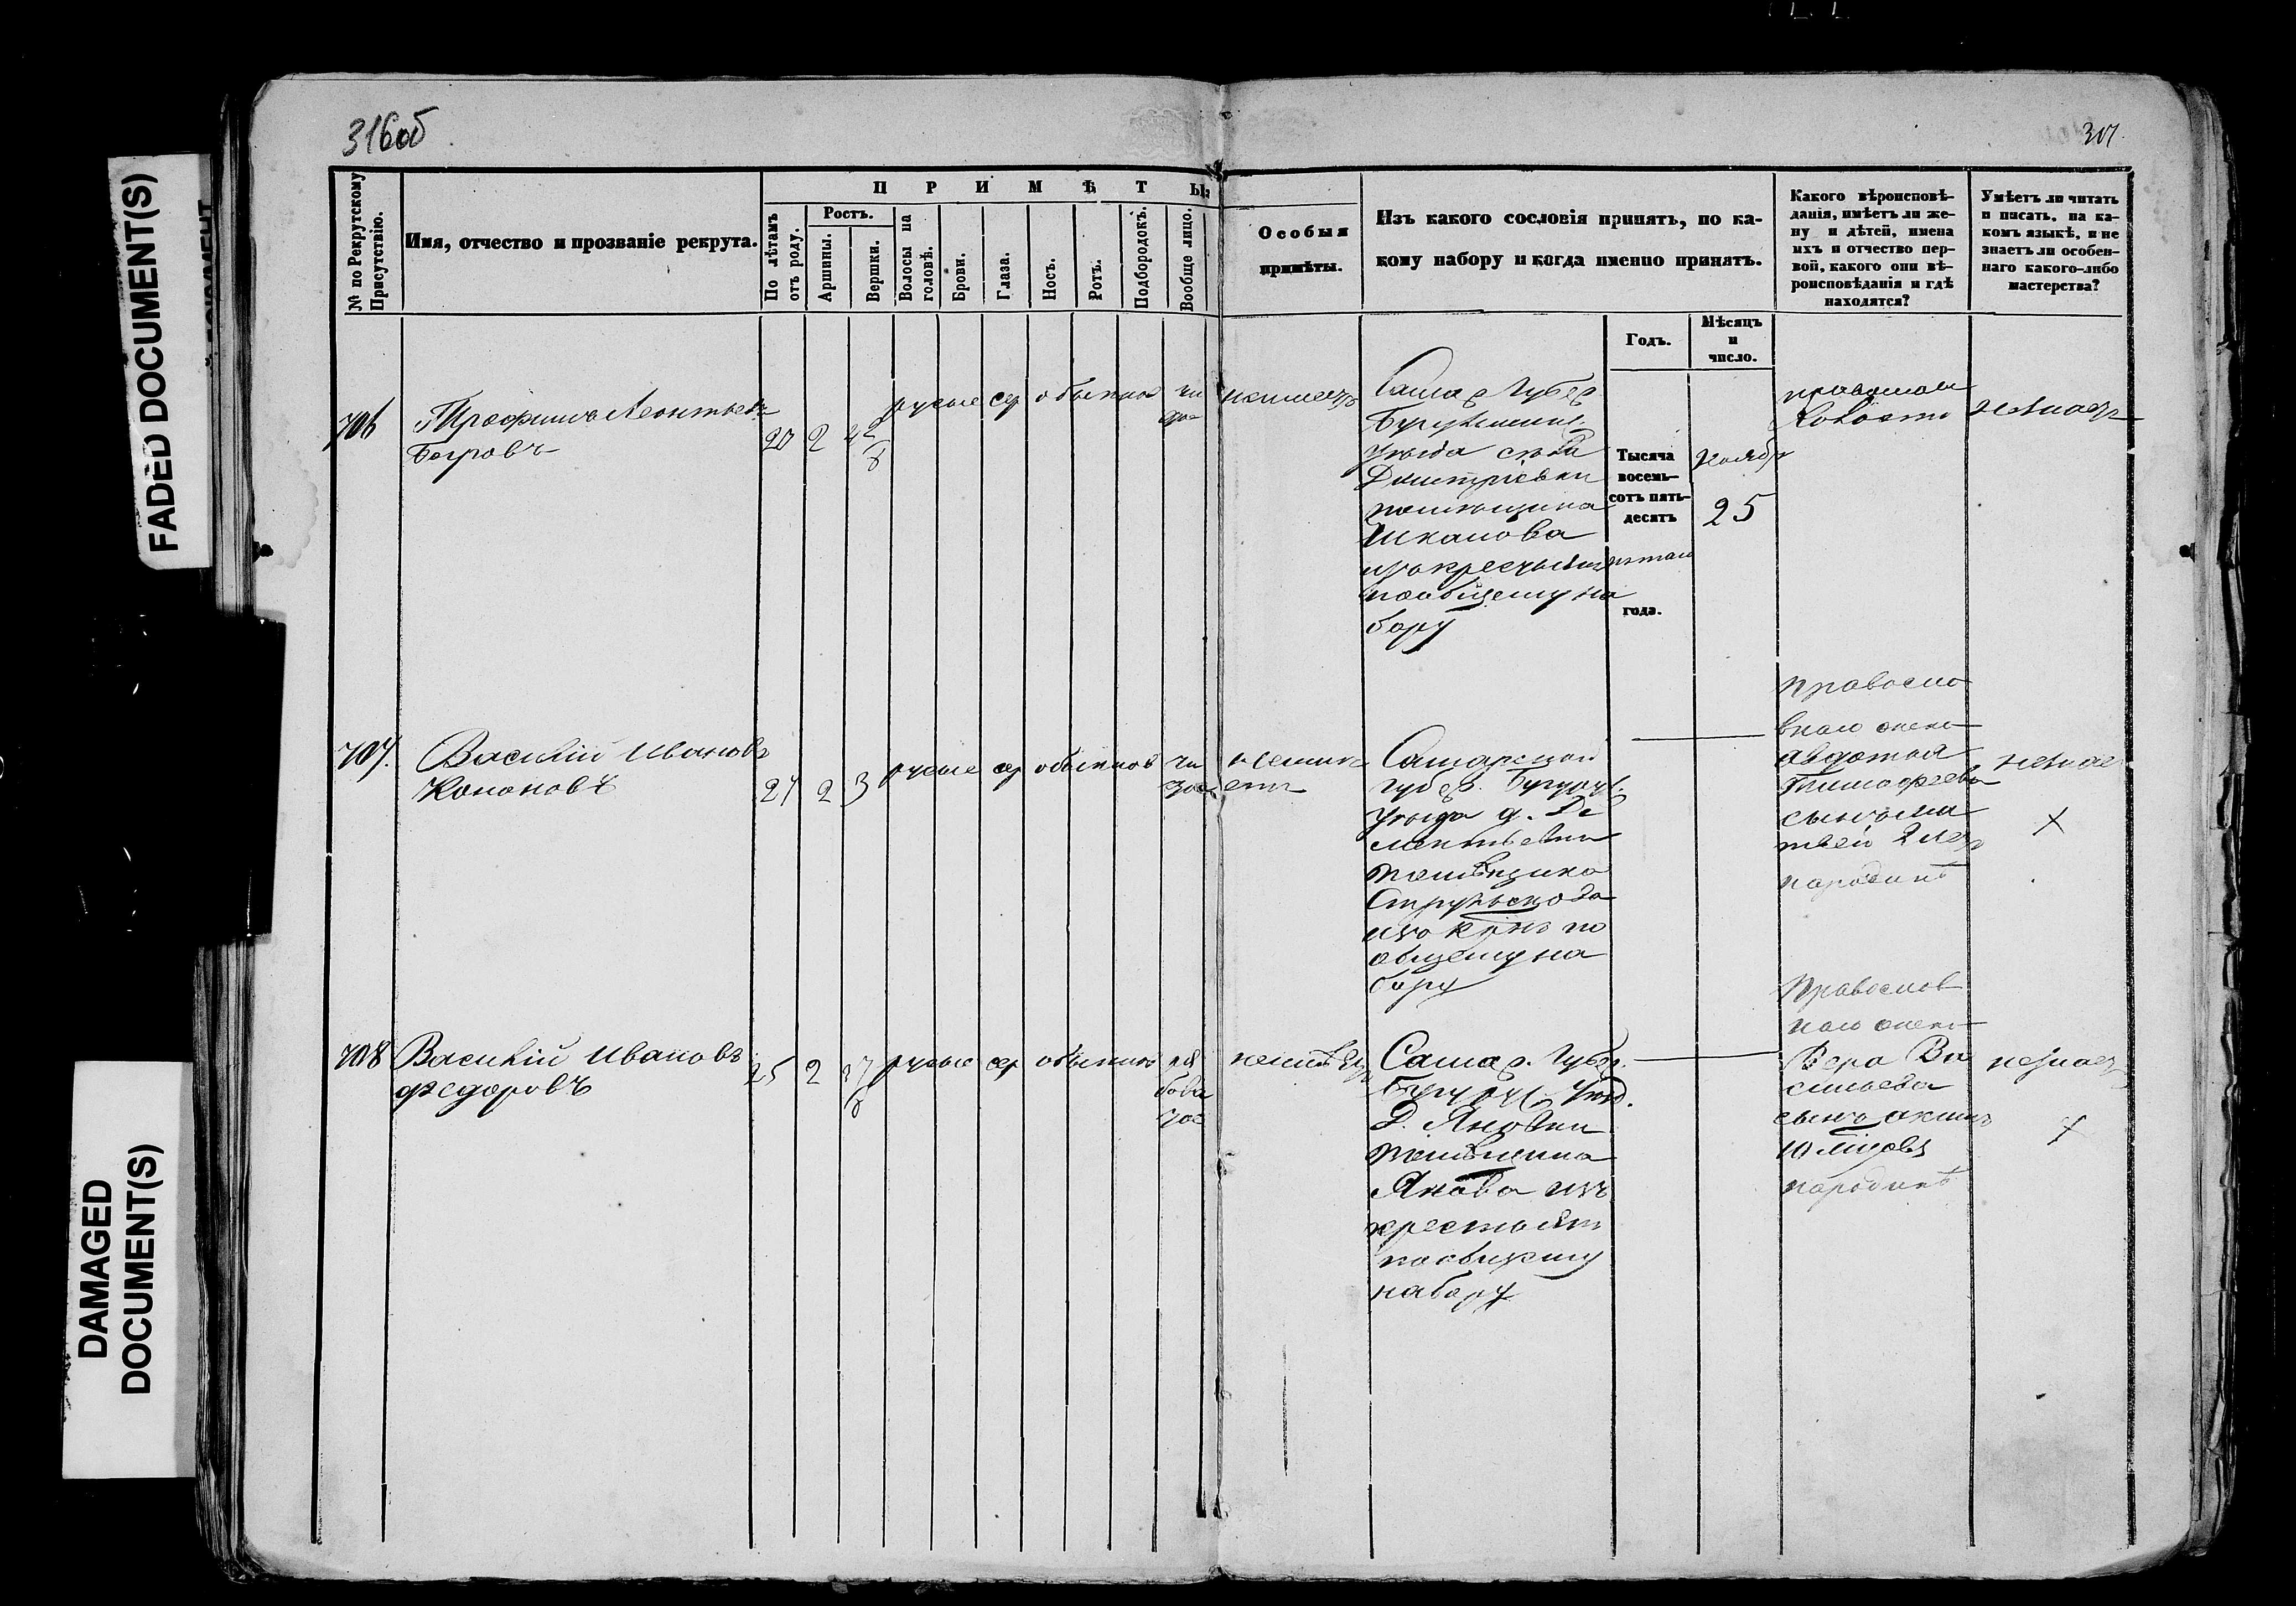 316об
317
FADED DOCUMENT(S)
DAMAGED
DOCUMENT(S)
№ по Рекрутскому
Присутствію.
Имя, отчество и прозваніе рекрута.
ПРИМѢТЫ
По лѣтамъ
отъ роду.
Ростъ.
Аршины.
Вершки.
Волосы на
головѣ.
Брови.
Глаза.
Носъ.
Ротъ.
Подбородокъ.
Вообще лицо.
Особыя
примѣты.
Изъ какого сословія принятъ, по ка-
кому набору и когда именно принятъ.
Годъ.
Мѣсяцъ
и
число.
Какого вѣроисповѣ-
данія, имѣетъ ли же-
ну и дѣтей, имена
ихъ и отчество пер-
вой, какого они вѣ-
роисповѣданія и гдѣ
находятся?
Умѣетъ ли читать
и писать, на ка-
комъ языкѣ, и не
знаетъ ли особен-
наго какого-либо
мастерства?
706
Трофимъ Леонтьевъ
Петровъ
20
2
русые
сер
обыкнов
чи
стое
неимеетъ
Самар Губер
уѣзда сѣла
Дмитріевки
помѣщика
Шкапова
изъ крестьянъ
пообщему на
бору
Тысяча
восемь-
сотъ пять-
десятъ
пятаго
года.
Ноябр
25
холостъ
незнаетъ
707.
Василій Ивановъ
Кононовъ
2
3
русые
сер
обыкнов
чи
стое
неиме
етъ
Самарской
губер. Бугурус.
уѣзда д. Де
ментьевки
помѣщика
изъ крнъ по
общему на
бору
православ
наго жена
Авдотья
Тимофеева
сынъ Ма
твей 2 лѣтъ
народинѣ
незнае
х
708
Василій Ивановъ
Федоровъ
25
2
русые
сер
обыкнов
ря
бова
тое
неимѣетъ
Самар. Губер.
Бугурус. Уѣзд.
Д. Яновки
помѣщика
Янова изъ
крестьянъ
пообщему
набору
Православ
наго жена
Вера Ва
сильева
сынъ Акимъ
10 мѣсяцевъ
народинѣ
незнаетъ
х